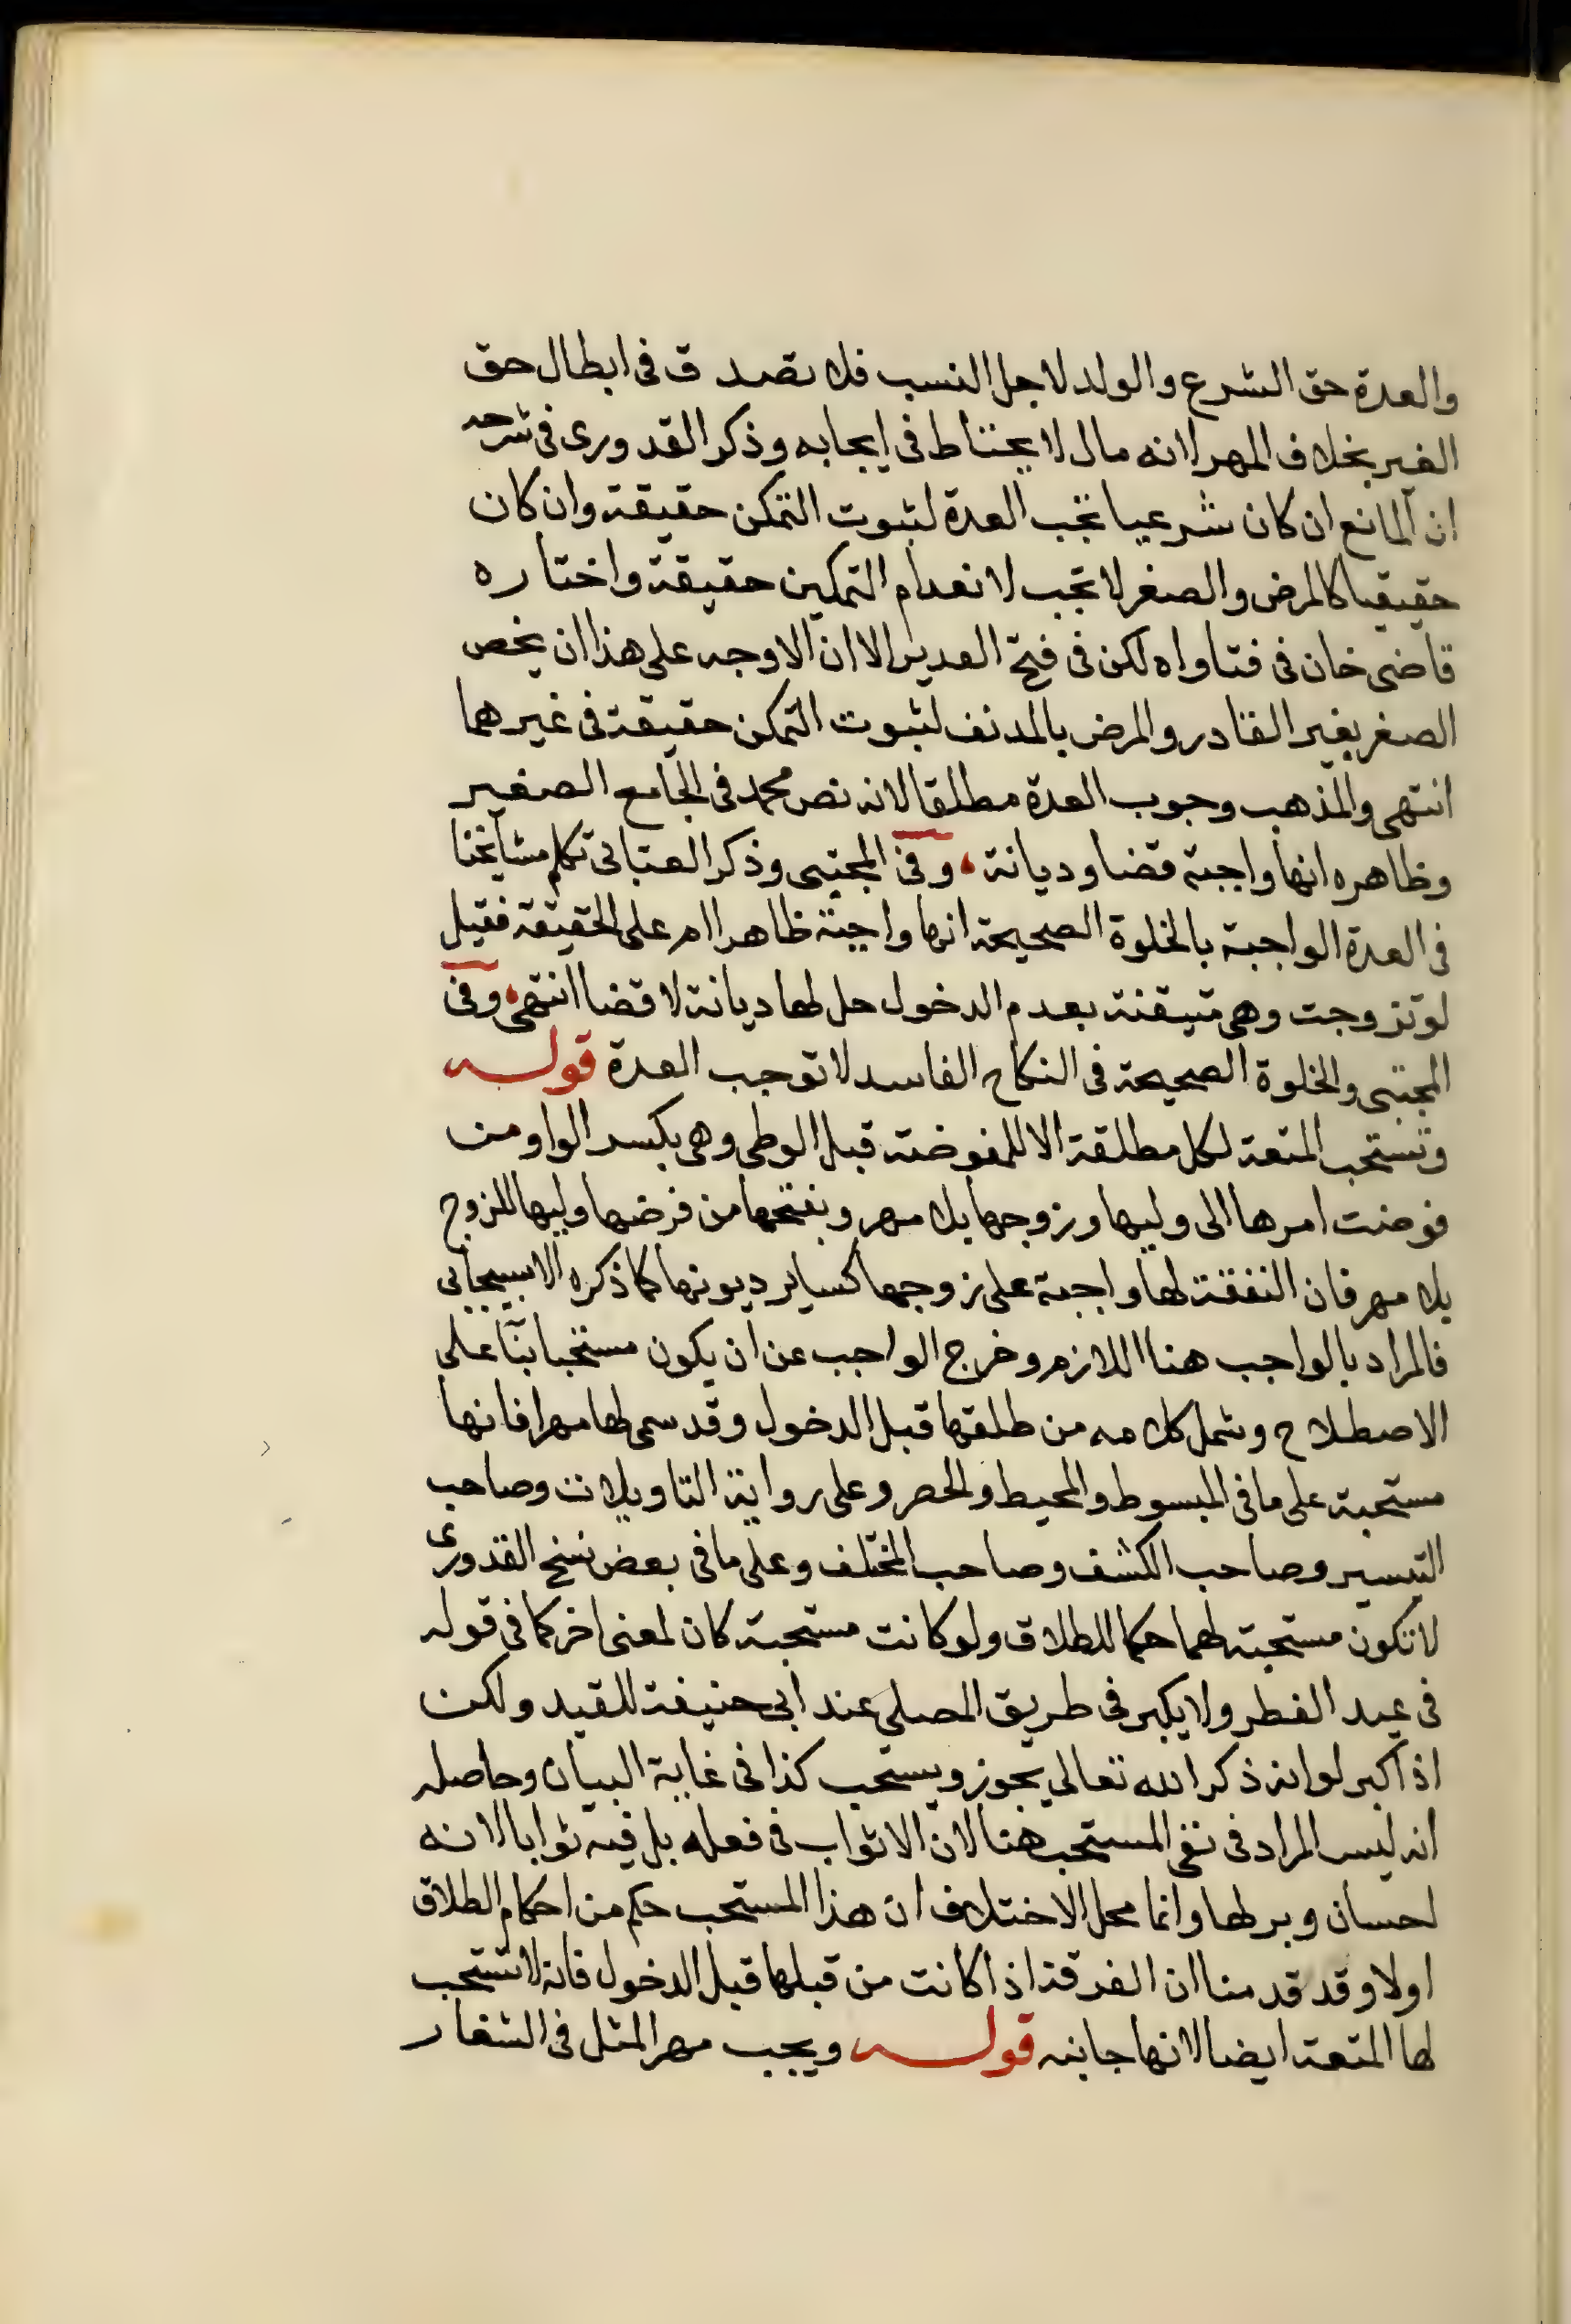 والعدة حق الشرع والولد لاجل النسب فلا تصدق فى ابطال حق
الغير بخلاف المهر لانه مال لا يحتاط فى ايجابه وذكر القدورى فى شرحه
ان المانع ان كان شرعيا تجب العدة لثبوت التمكن حقيقة وان كان
حقيقيا كالمرض والصغر لا تجب لانعدام التمكين حقيقة واختاره
قاضى خان فى فتاواه لكن فى فتح القدير الا ان الاوجه على هذا ان يخص
الصغر بغير القادر والمرض بالمدنف لثبوت التمكن حقيقة فى غيرهما
انتهى والمذهب وجوب العدة مطلقا لانه نص محمد فى الجامع الصغير
وظاهره انها واجبة قضا وديانة، وفى المجتبى وذكر العتابى تكلم مشايخنا
فى العدة الواجبة بالخلوة الصحيحة انها واجبة ظاهرا ام على الحقيقة فقيل
لو تزوجت وهى متيقنة بعدم الدخول حل لها ديانة لا قضا انتهى، وفى
المجتبى والخلوة الصحيحة فى النكاح الفاسد لا توجب العدة قوله
وتستحب المتعة لكل مطلقة الا للمفوضة قبل الوطى وهى بكسر الواو من
فوضت امرها الى وليها وزوجها بلا مهر وبفتحها من فرضها وليها للزوج
بلا مهر فان النفقة لها واجبة على زوجها كساير ديونها كما ذكره الاسبيجابى
فالمراد بالواجب هنا اللازم وخرج الواجب عن ان يكون مستحبا بنآ على
الاصطلاح وشمل كلامه من طلقها قبل الدخول وقد سمى لها مهرا فانها
مستحبة على ما فى المبسوط والمحيط والحصر وعلى رواية التاويلات وصاحب
التيسير وصاحب الكشف وصاحب المختلف وعلى ما فى بعض نسخ القدورى
لا تكون مستحبة لهما حكما للطلاق ولو كانت مستحبة كان لمعنى اخر كما فى قوله
فى عيد الفطر ولا يكبر فى طريق المصلى عند ابى حنيفة للقيد ولكن
اذ اكبر لو انه ذكر الله تعالى يجوز ويستحب كذا فى غاية البيان وحاصله
انه ليس المراد فى نفى المستحب هنا لان الا ثواب فى فعله بل فيه ثوابا لانه
احسان وبر لها وانما محل الاختلاف ان هذا المستحب حكم من احكام الطلاق
اولا وقد قدمنا ان الفرقة اذا كانت من قبلها قبل الدخول فانه لا تستحب
لها المتعة ايضا لانها جانيه قوله ويجب مهر المثل فى الشغار